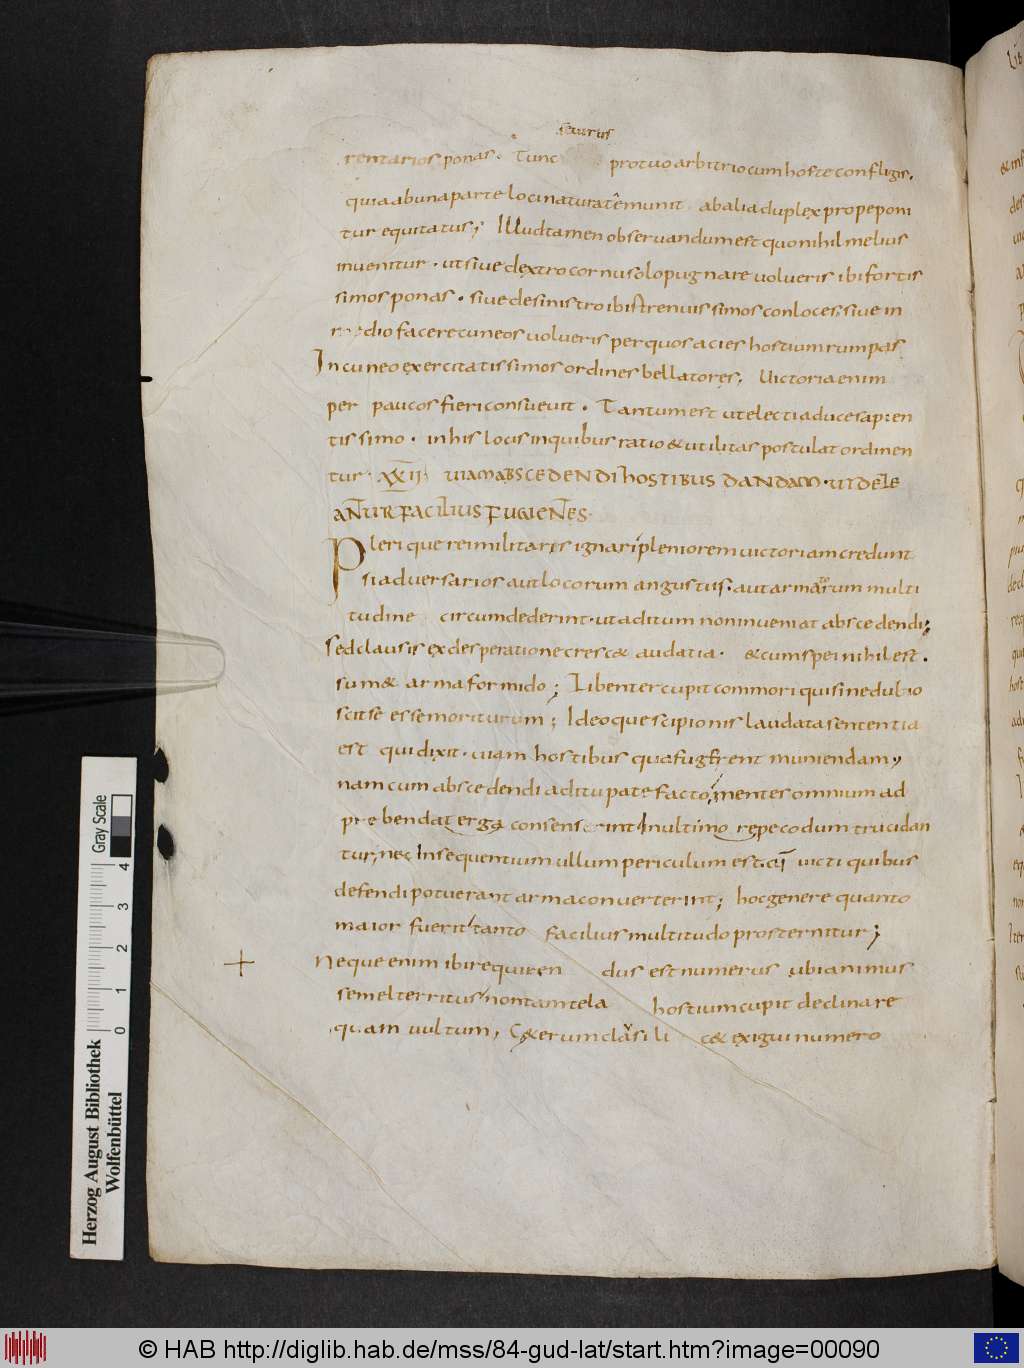 securus
rentarios ponas. Tunc protuo arbitrio cum hoste confligis.
quia ab una parte loci natura te munit ab alia duplex prope poni
tur equitatus; Illud tamen observandum est quo nihil melius
invenitur. ut sive dextro cornu solo pugnare volveris ibi fortis
simos ponas. sive de sinistro ibi strenuissimos conloces; sive in
medio facere cuneos volveris per quos acies hostium rumpas
In cuneo exercitatissimos ordines bellatores; Victoria enim
per paucos fieri consuevit. Tantum est ut electi a duce sapien
tissimo. in his locis in quibus ratio & utilitas postulat ordinen
tur. XXII; VIAM ABSCEDENDI HOSTIBUS DANDAM. UT DELE
ANTUR FACILIUS FUGIENTES.
Plerique rei militaris ignari pleniorem victoriam credunt
si adversarios aut locorum angustiis. aut armatorum multi
tudine circumdederint. ut aditum non inveniat abscedendi;
Sed clausis ex desperatione cresc& audatia. & cum spei nihil est.
sum& arma formido; Libenter cupit commori qui sine dubio
scit se esse moriturum; Ideoque scipionis laudata sententia
est qui dixit. viam hostibus qua fugerent muniendam;
nam cum abscedendi aditu patefacto mentes omnium ad
prebenda terga consenserint Inulti more pecodum trucidan
tur; nec Insequentium ullum periculum est. cum victi quibus
defendi potuerant arma converterint; hoc genere quanto
maior fuerit tanto facilius multitudo prosternitur;
Neque enim ibi requiren dus est numerus ubi animus
semel territus non tam tela hostium cupit declinare
quam vultum; C&erum clausi li c& exigui numero
Herzog August Bibliothek
Wolfenbüttel
0 1 2 3 4
Gray Scale
© HAB http://diglib.hab.de/mss/84-gud-lat/start.htm?image=00090